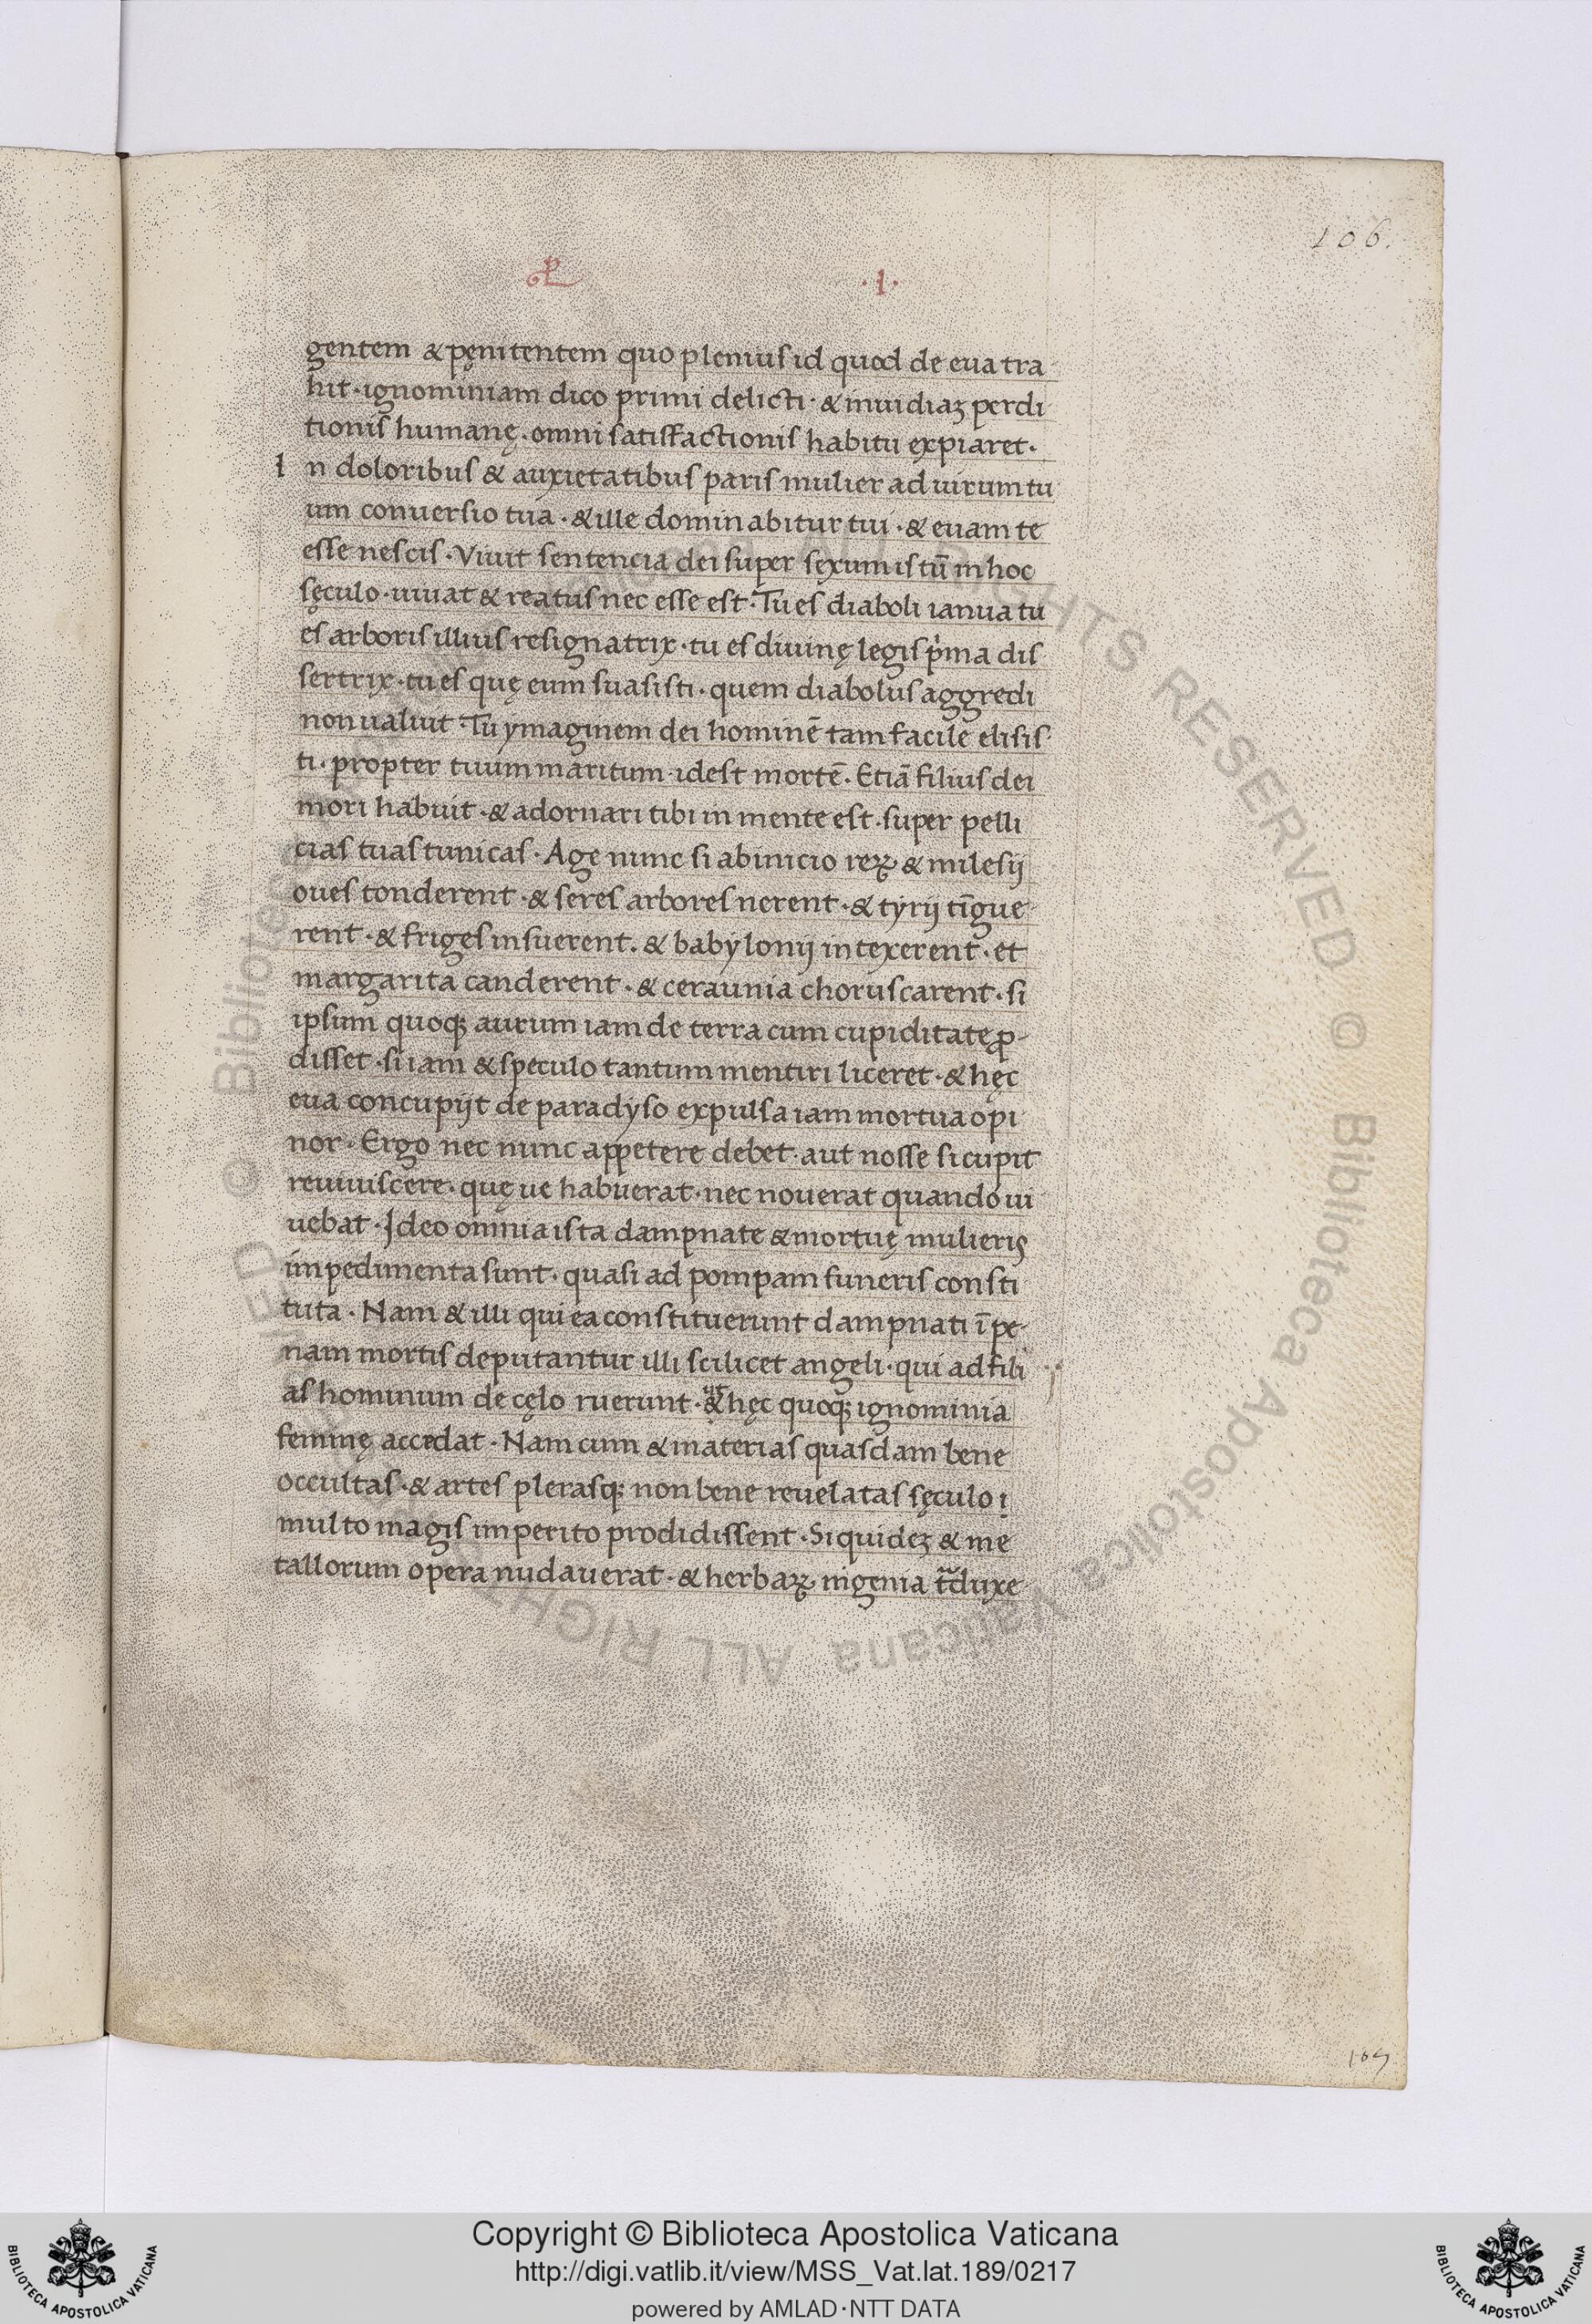 106.
.I.
gentem & pęnitentem quo plenius id quod de eua tra
hit · ignominiam dico primi delicti · & inuidiaꝫ perdi
tionis humanę · omni satisfactionis habitu expiaret ·
I n doloribus & auxietatibus paris mulier ad uirum tu
um conuersio tua · & ille dominabitur tui · & euam te
esse nescis · Viuit sentencia dei super sexum istū in hoc
sęculo · uiuat & reatus nec esse est · Tu es diaboli ianua tu
es arboris illius resignatrix · tu es diuinę legis pͥma dis
sertrix · tu es quę eum suasisti · quem diabolus aggredi
non ualuit · Tu ymaginem dei hominē tam facile elisis
ti · propter tuum maritum · idest mortē · Etiā filius dei
mori habuit · & adornari tibi in mente est · super pelli
cias tuas tunicas · Age nunc si abinicio reꝝ & milesij
oues tonderent · & seres arbores nerent · & tyrij tīgue
rent · & friges insuerent · & babylonij intexerent · et
margarita canderent · & ceraunia choruscarent · si
ipsum quoqꝫ aurum iam de terra cum cupiditate ꝓ-
disset · si iam & speculo tantum mentiri liceret · & hęc
eua concupijt de paradyso expulsa iam mortua opi
nor · Ergo nec nunc appetere debet · aut nosse si cupit
reuiuiscere · quę ue habuerat · nec nouerat quando ui
uebat · Ideo omnia ista dampnate & mortuę mulieris
impedimenta sunt · quasi ad pompam funeris consti
tuta · Nam & illi qui ea constituerunt dampnati ī pe-
nam mortis deputantur illi scilicet angeli · qui ad fili
as hominum de cęlo ruerunt · ut & hęc quoqꝫ ignominia
feminę accedat · Nam cum & materias quasdam bene
occultas · & artes plerasqꝫ non bene reuelatas sęculo
multo magis imperito prodidissent · Siquideꝫ & me
tallorum opera nudauerat · & herbaꝝ ingenia traduxe
169
© Biblioteca Apostolica Vaticana ALL RIGHTS RESERVED © Biblioteca Apostolica Vaticana ALL RIGHTS RESERVED
Copyright © Biblioteca Apostolica Vaticana
http://digi.vatlib.it/view/MSS_Vat.lat.189/0217
powered by AMLAD·NTT DATA
BIBLIOTECA APOSTOLICA VATICANA
BIBLIOTECA APOSTOLICA VATICANA